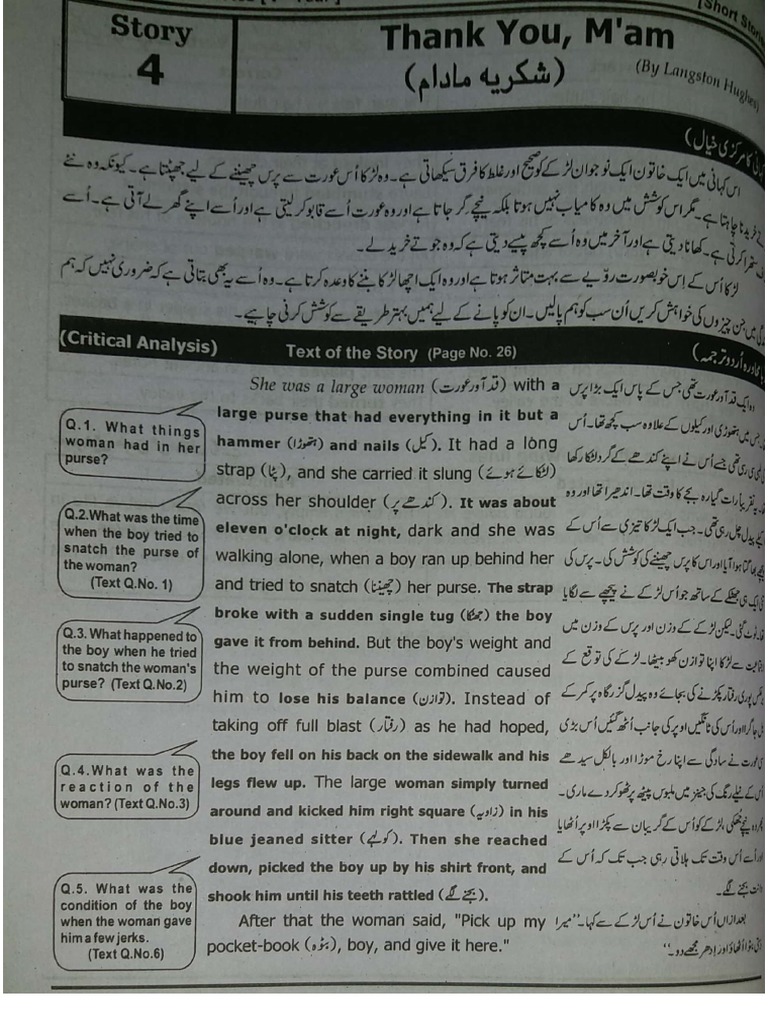 [Short Stories
Story
4
Thank You, M'am
(شکریہ مادام)
(By Langston Hughes)
کا مرکزی خیال)
اس کہانی میں ایک خاتون ایک نوجوان لڑکے کو صحیح اور غلط کا فرق سیکھاتی ہے۔ وہ لڑکا اُس عورت سے پرس چھیننے کے لیے جھپٹتا ہے۔ کیونکہ وہ نئے
خریدنا چاہتا ہے۔ مگر اس کوشش میں وہ کامیاب نہیں ہوتا بلکہ نیچے گر جاتا ہے اور وہ عورت اُسے قابو کر لیتی ہے اور اُسے اپنے گھر لے آتی ہے۔ اُسے
ستھرا کرتی ہے۔ کھانا دیتی ہے اور آخر میں وہ اُسے کچھ پیسے دیتی ہے کہ وہ جوتے خرید لے۔
لڑکا اُس کے اِس خوبصورت روّیے سے بہت متاثر ہوتا ہے اور وہ ایک اچھا لڑکا بننے کا وعدہ کرتا ہے۔ وہ اُسے یہ بھی بتاتی ہے کہ ضروری نہیں کہ ہم
میں جن چیزوں کی خواہش کریں اُن سب کو ہم پالیں۔ ان کو پانے کے لیے ہمیں بہتر طریقے سے کوشش کرنی چاہیے۔
(Critical Analysis) Text of the Story (Page No. 26) بامحاورہ اُردو ترجمہ)
She was a large woman (قد آور عورت) with a
large purse that had everything in it but a
hammer (ہتھوڑا) and nails (کیل). It had a long
strap (پٹا), and she carried it slung (لٹکائے ہوئے)
across her shoulder (کندھے پر). It was about
eleven o'clock at night, dark and she was
walking alone, when a boy ran up behind her
and tried to snatch (چھیننا) her purse. The strap
broke with a sudden single tug (جھٹکا) the boy
gave it from behind. But the boy's weight and
the weight of the purse combined caused
him to lose his balance (توازن). Instead of
taking off full blast (رفتار) as he had hoped,
the boy fell on his back on the sidewalk and his
legs flew up. The large woman simply turned
around and kicked him right square (زاویہ) in his
blue jeaned sitter (کولہے). Then she reached
down, picked the boy up by his shirt front, and
shook him until his teeth rattled (بجنے لگے).
After that the woman said, "Pick up my
pocket-book (بٹوہ), boy, and give it here."
Q.1. What things
woman had in her
purse?
Q.2.What was the time
when the boy tried to
snatch the purse of
the woman?
(Text Q.No. 1)
Q.3. What happened to
the boy when he tried
to snatch the woman's
purse? (Text Q.No.2)
Q.4.What was the
reaction of the
woman? (Text Q.No.3)
Q.5. What was the
condition of the boy
when the woman gave
him a few jerks.
(Text Q.No.6)
وہ ایک قد آور عورت تھی جس کے پاس ایک بڑا پرس
جس میں ہتھوڑی اور کیلوں کے علاوہ سب کچھ تھا۔ اُس
رسی تھی جسے اُس نے اپنے کندھے کے گرد لٹکا رکھا
تقریباً رات گیارہ بجے کا وقت تھا۔ اندھیرا تھا اور وہ
پیدل چل رہی تھی۔ جب ایک لڑکا تیزی سے اُس کے
بھاگتا ہوا آیا اور اس کا پرس چھیننے کی کوشش کی۔ پرس کی
ایک ہی جھٹکے کے ساتھ جو اُس لڑکے نے پیچھے سے لگایا
ٹوٹ گئی۔ لیکن لڑکے کے وزن اور پرس کے وزن میں
سے لڑکا اپنا توازن کھو بیٹھا۔ لڑکے کی توقع کے
پوری رفتار پکڑنے کی بجائے وہ پیدل گزرگاہ پر کمر کے
جا گرا اور اُس کی ٹانگیں اوپر کی جانب اُٹھ گئیں اُس بڑی
عورت نے سادگی سے اپنا رخ موڑا اور بالکل سیدھے
اُس کے نیلے رنگ کی جینز میں ملبوس پیٹھ پر ٹھوکر دے ماری۔
پھر وہ نیچے جھکی، لڑکے کو اُس کے گریبان سے پکڑا اوپر اُٹھایا
اور اُسے اُس وقت تک ہلاتی رہی جب تک کہ اُس کے
دانت بجنے لگے۔
بعد ازاں اُس خاتون نے اُس لڑکے سے کہا۔ "میرا
بٹوا اُٹھاؤ اور اِدھر مجھے دو۔"